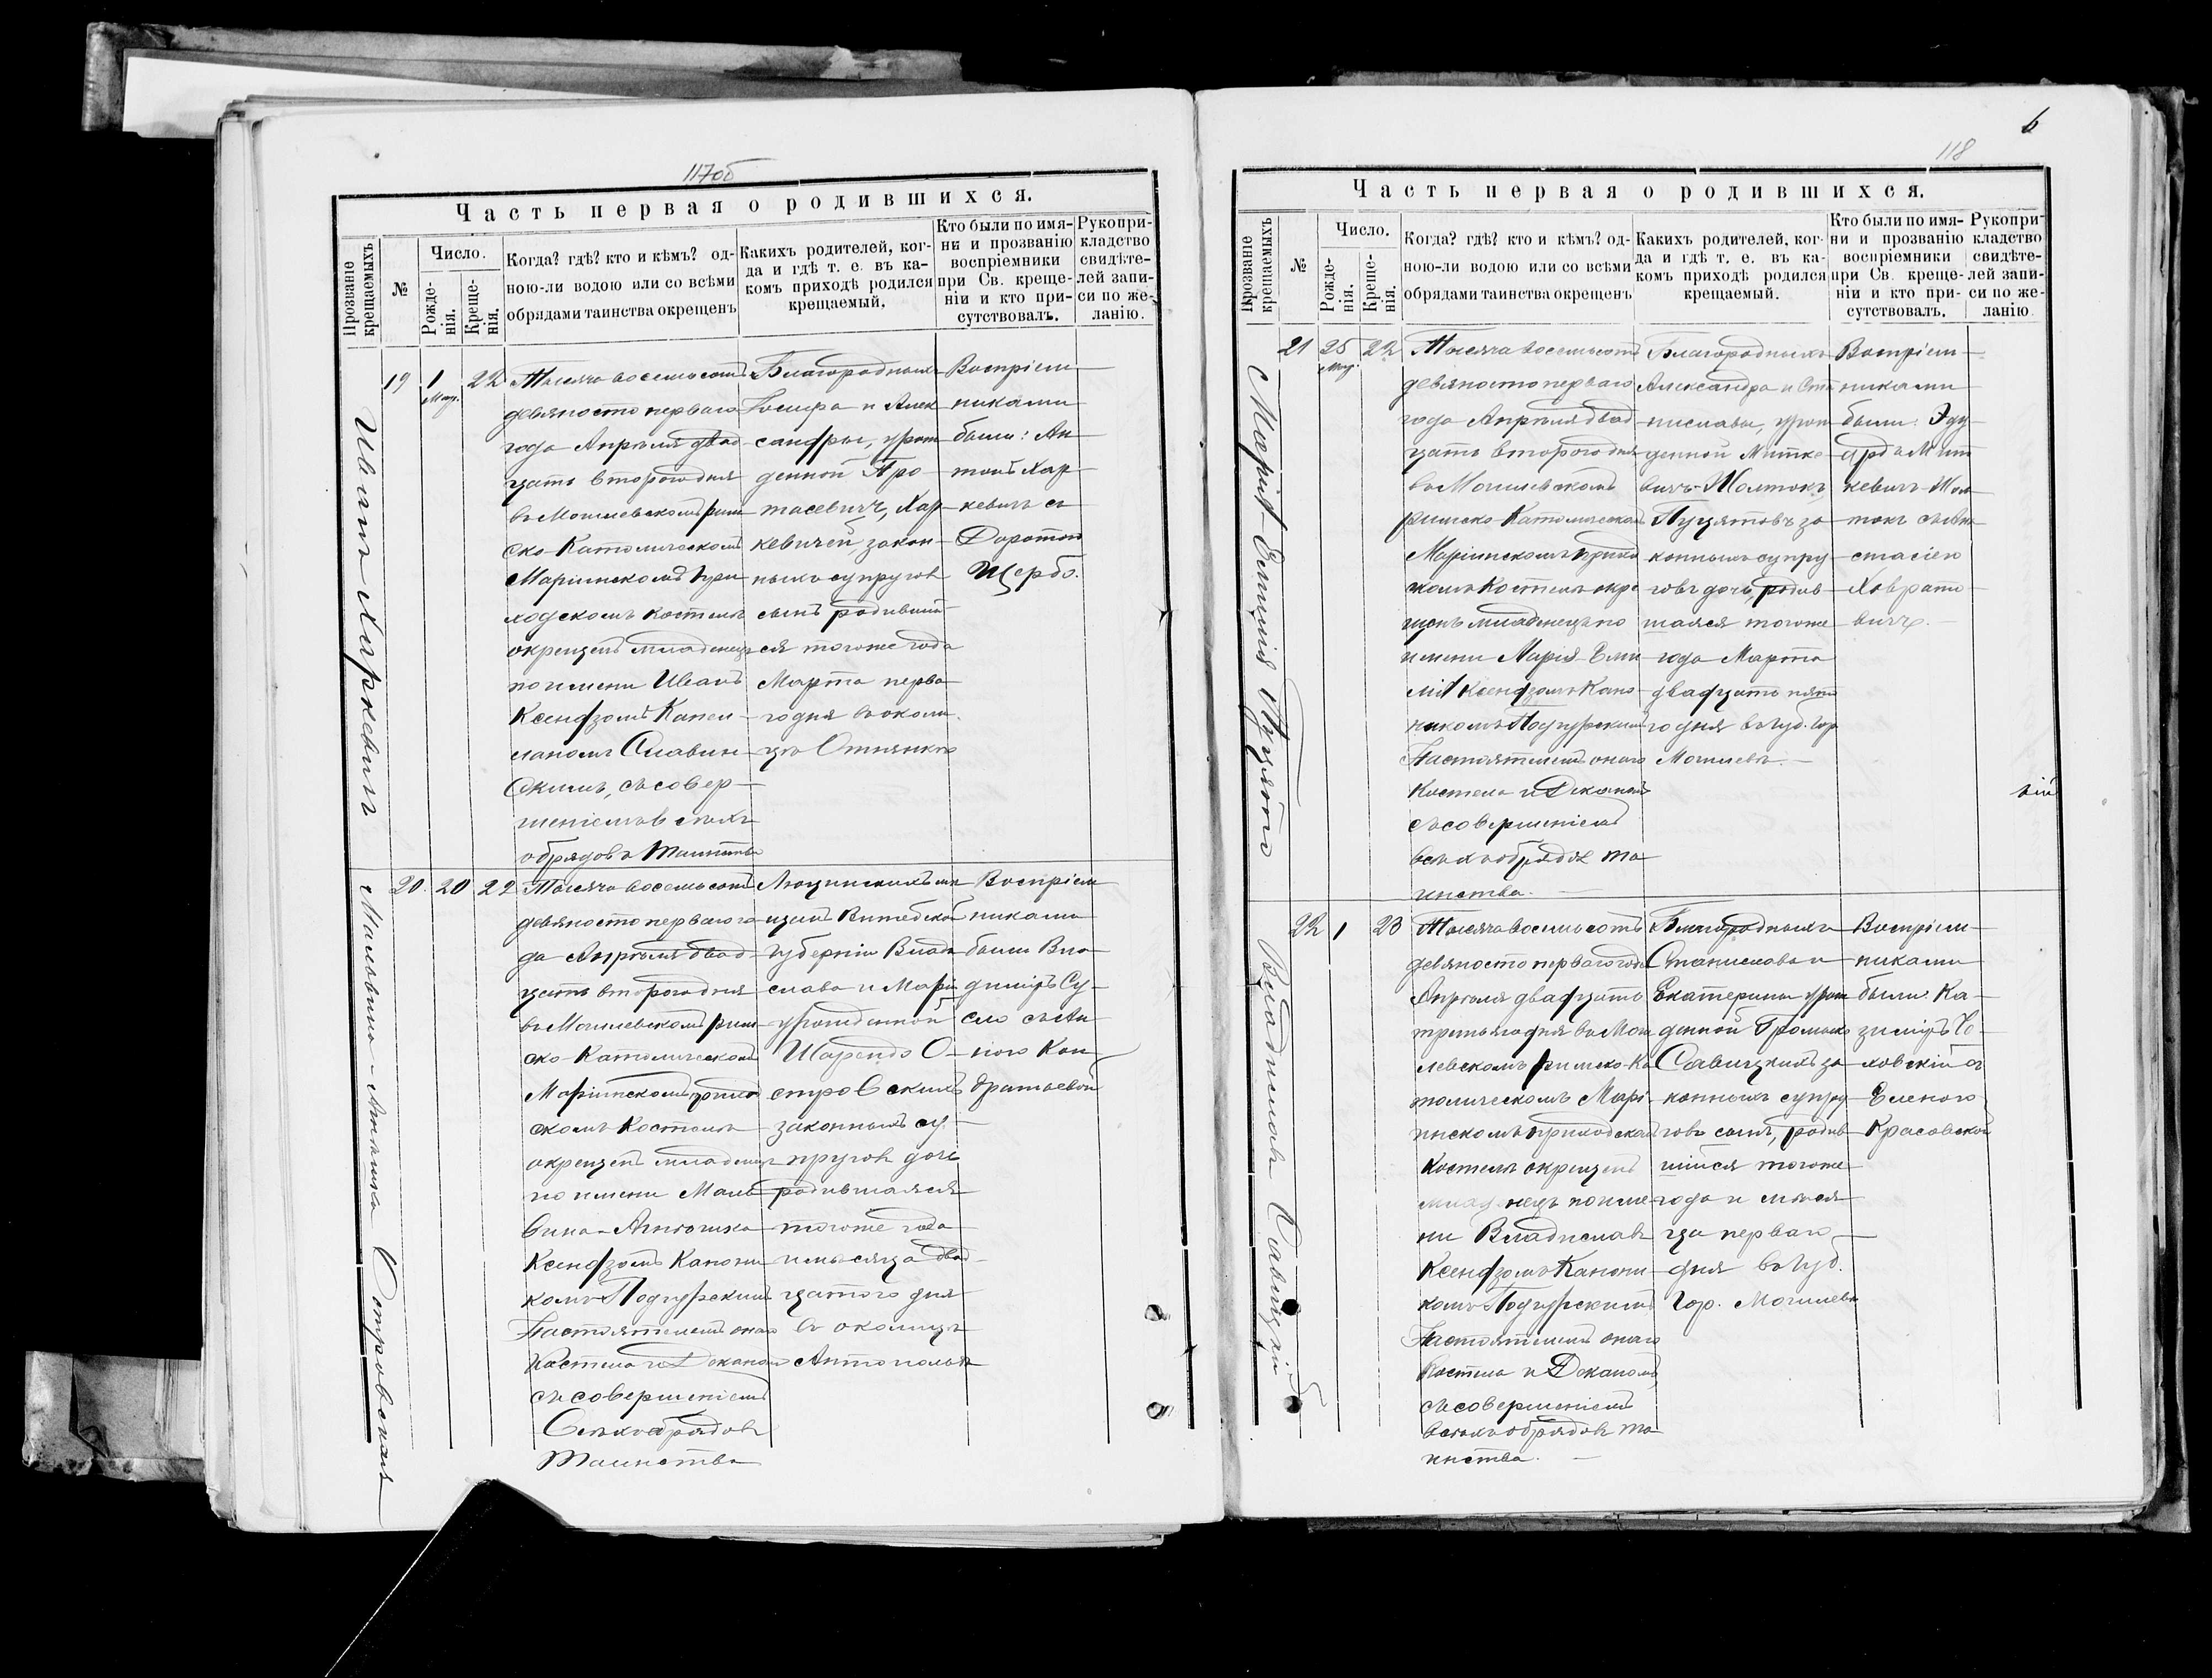 117об
Часть первая о родившихся.
Прозваніе крещаемыхъ
№
Число.
Рожде-
нія.
Креще-
нія.
Когда? гдѣ? кто и кѣмъ? од-
ною-ли водою или со всѣми
обрядами таинства окрещенъ
Какихъ родителей, ког-
да и гдѣ т. е. въ ка-
комъ приходѣ родился
крещаемый.
Кто были по имя-
ни и прозванію
воспріемники
при Св. креще-
ніи и кто при-
сутствовалъ.
Рукопри-
кладство
свидѣте-
лей запи-
си по же-
ланію.
Иванъ Харкевич
19
1
Мар.
22
Тысяча восемьсотъ
девяносто перваго
года Апрѣля двад
цать второго дня
въ Могилевскомъ рим
ско-Католическомъ
Маріинскомъ при
ходскомъ костелѣ
окрещенъ младенецъ
по имени Иванъ
Ксендзомъ Капел-
ланомъ Славин
скимъ, съ совер-
шеніемъ всѣхъ
обрядовъ таинства
Благородныхъ
Іосифа и Алек
сандры, урож
денной Про-
тасевичъ, Хар
кевичей, закон-
ныхъ супруговъ
сынъ родившій-
ся тогоже года
Марта перва
го дня въ околи-
цѣ
Воспріем
никами
были: Ан
тонъ Хар
кевичъ съ
Доротою
Щербо.
Мальвина-Антонина Островская
20.
20
22
Тысяча восемьсотъ
девяносто перваго го
да Апрѣля двад
цать второго дня
въ Могилевскомъ рим
ско-Католическомъ
Маріинскомъ приход
скомъ Костелѣ
окрещенъ младенецъ
по имени Маль
вина-Антонина
Ксендзомъ Канони
комъ Подгурскимъ
Настоятелемъ онаго
Костела и Деканомъ
съ совершеніемъ
всѣхъ обрядовъ
таинства
Люцинскихъ мѣ
щанъ Витебской
губерніи Влади
слава и Маріи
урожденной
Шарендо О-
стровскихъ
законныхъ су-
пруговъ дочь
родившаяся
тогоже года
и мѣсяца двад
цатого дня
въ околицѣ
Антополь
Воспріем
никами
были Вла
диміръ Су-
ло съ Ан
ною Кон
дратьевой
6
118
Часть первая о родившихся.
Прозваніе крещаемыхъ
№
Число.
Рожде-
нія.
Креще-
нія.
Когда? гдѣ? кто и кѣмъ? од-
ною-ли водою или со всѣми
обрядами таинства окрещенъ
Какихъ родителей, ког-
да и гдѣ т. е. въ ка-
комъ приходѣ родился
крещаемый.
Кто были по имя-
ни и прозванію
воспріемники
при Св. креще-
ніи и кто при-
сутствовалъ.
Рукопри-
кладство
свидѣте-
лей запи-
си по же-
ланію.
Марія-Емилія Пуцято
21
25
Мар.
22
Тысяча восемьсотъ
девяносто перваго
года Апрѣля двад
цать второго дня
въ Могилевскомъ
римско-Католическомъ
Маріинскомъ приход
скомъ Костелѣ окре
щенъ младенецъ по
имени Марія-Еми
лія Ксендзомъ Кано-
никомъ Подгурскимъ
Настоятелемъ онаго
Костела и Деканомъ
съ совершеніемъ
всѣхъ обрядовъ та
инства.
Благородныхъ
Александра и Ста
ниславы, урож
денной Митке
вичъ-Жолтокъ
Пуцятовъ за
конныхъ супру
говъ дочь, родив
шаяся тогоже
года Марта
двадцать пята
го дня въ губ. гор
Могилевѣ.
Воспріем-
никами
были: Эду
ардъ Мит
кевичъ-Жол
токъ съ Ана
стасіею
Ховрато
вичъ.
кій
Владиславъ Савицкій
22
1
23
Тысяча восемьсотъ
девяносто перваго года
Апрѣля двадцать
третьяго дня въ Моги
левскомъ римско-Ка
толическомъ Марі-
инскомъ приходскомъ
Костелѣ окрещенъ
младенецъ по име
ни Владиславъ
Ксендзомъ Канони-
комъ Подгурскимъ
Настоятелемъ онаго
Костела и Деканомъ,
съ совершеніемъ
всѣхъ обрядовъ та
инства.
Благородныхъ
Станислава и
Екатерины урож
денной Громыко
Савицкихъ за
конныхъ супру
говъ сынъ, родив
шійся тогоже
года и мѣся
ца перваго
дня въ губ.
гор. Могилевѣ
Воспріем-
никами
были: Ка-
зиміръ Че-
ховскій съ
Еленою
Красовской